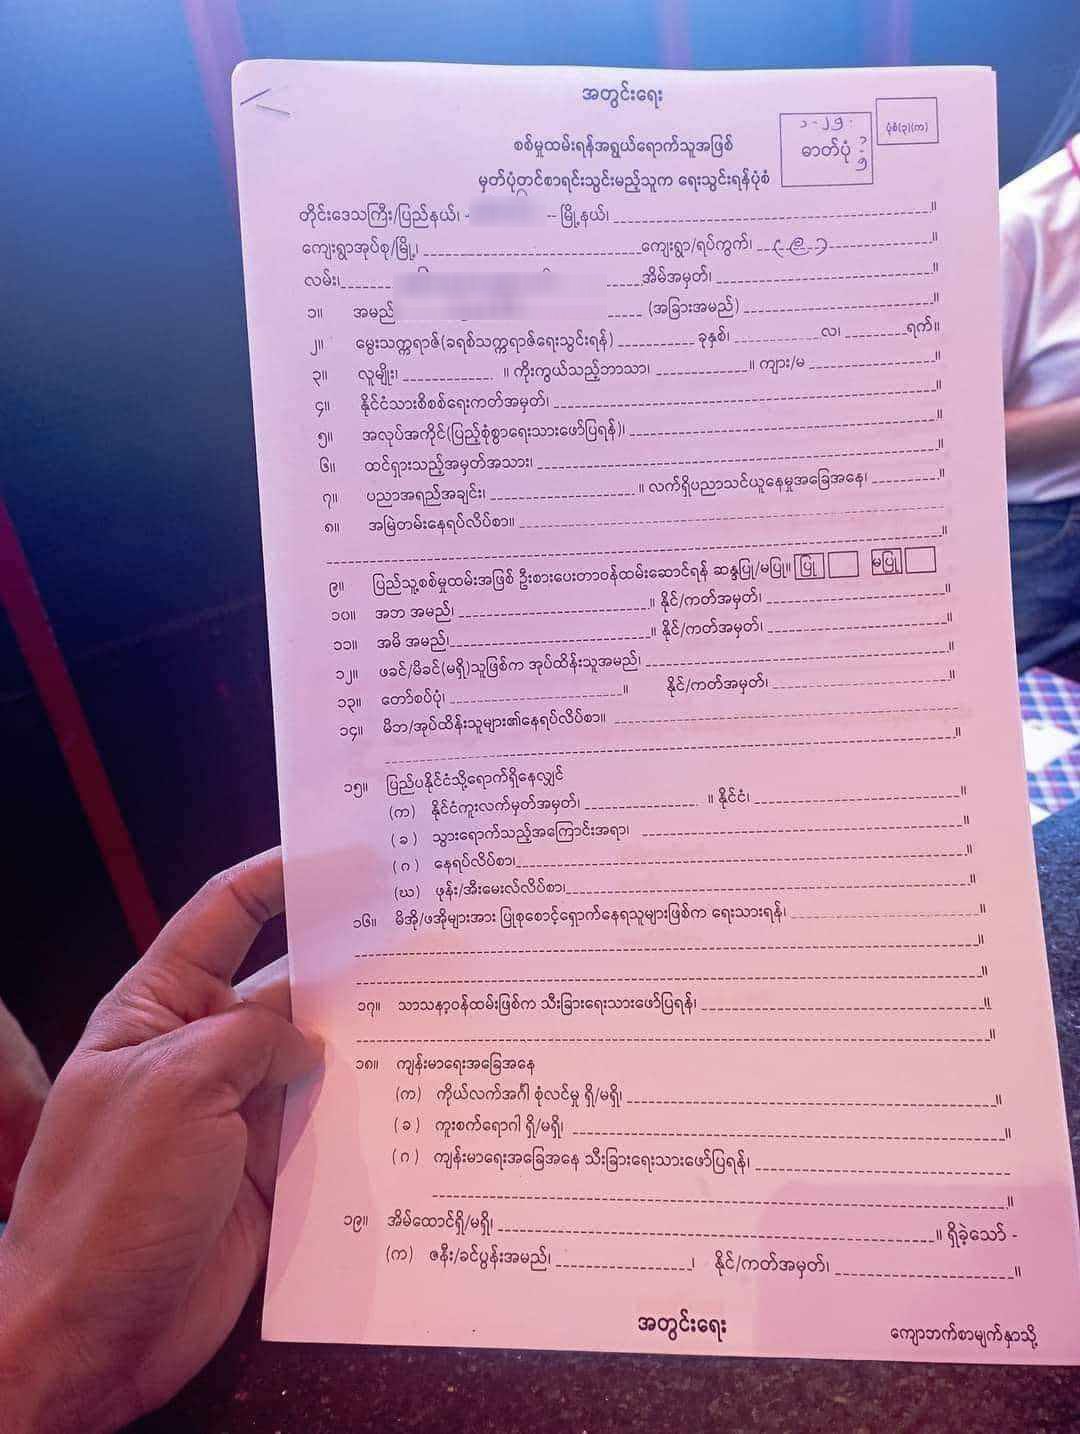 အတွင်းရေး
ပုံစံ(၃)(က)
ဓာတ်ပုံ
စစ်မှုထမ်းရန်အရွယ်ရောက်သူအဖြစ်
မှတ်ပုံတင်စာရင်းသွင်းမည့်သူက ရေးသွင်းရန်ပုံစံ
တိုင်းဒေသကြီး/ပြည်နယ်၊ မြို့နယ်၊ ။
ကျေးရွာအုပ်စု/မြို့၊ ကျေးရွာ/ရပ်ကွက်၊ ။
လမ်း၊ အိမ်အမှတ်၊ ။
၁။ အမည် (အခြားအမည်) ။
၂။ မွေးသက္ကရာဇ်(ခရစ်သက္ကရာဇ်ရေးသွင်းရန်) ခုနှစ်၊ လ၊ ရက်။
၃။ လူမျိုး၊ ။ ကိုးကွယ်သည့်ဘာသာ၊ ။ ကျား/မ ။
၄။ နိုင်ငံသားစိစစ်ရေးကတ်အမှတ်၊ ။
၅။ အလုပ်အကိုင်(ပြည့်စုံစွာရေးသားဖော်ပြရန်)၊ ။
၆။ ထင်ရှားသည့်အမှတ်အသား၊ ။
၇။ ပညာအရည်အချင်း၊ ။ လက်ရှိပညာသင်ယူနေမှုအခြေအနေ၊ ။
၈။ အမြဲတမ်းနေရပ်လိပ်စာ။
။
၉။ ပြည်သူ့စစ်မှုထမ်းအဖြစ် ဦးစားပေးတာဝန်ထမ်းဆောင်ရန် ဆန္ဒပြု/မပြု။ ပြု မပြု
၁၀။ အဘ အမည်၊ ။ နိုင်/ကတ်အမှတ်၊ ။
၁၁။ အမိ အမည်၊ ။ နိုင်/ကတ်အမှတ်၊ ။
၁၂။ ဖခင်/မိခင်(မရှိ)သူဖြစ်က အုပ်ထိန်းသူအမည်၊ ။
၁၃။ တော်စပ်ပုံ၊ ။ နိုင်/ကတ်အမှတ်၊ ။
၁၄။ မိဘ/အုပ်ထိန်းသူများ၏နေရပ်လိပ်စာ။
။
၁၅။ ပြည်ပနိုင်ငံသို့ရောက်ရှိနေလျှင်
(က) နိုင်ငံကူးလက်မှတ်အမှတ်၊ ။ နိုင်ငံ၊ ။
(ခ) သွားရောက်သည့်အကြောင်းအရာ၊ ။
(ဂ) နေရပ်လိပ်စာ၊ ။
(ဃ) ဖုန်း/အီးမေးလ်လိပ်စာ၊ ။
၁၆။ မိအို/ဖအိုများအား ပြုစုစောင့်ရှောက်နေရသူများဖြစ်က ရေးသားရန်၊ ။
။
။
၁၇။ သာသနာ့ဝန်ထမ်းဖြစ်က သီးခြားရေးသားဖော်ပြရန်၊ ။
။
၁၈။ ကျန်းမာရေးအခြေအနေ
(က) ကိုယ်လက်အင်္ဂါ စုံလင်မှု ရှိ/မရှိ၊ ။
(ခ) ကူးစက်ရောဂါ ရှိ/မရှိ၊ ။
(ဂ) ကျန်းမာရေးအခြေအနေ သီးခြားရေးသားဖော်ပြရန်၊
။
၁၉။ အိမ်ထောင်ရှိ/မရှိ၊ ။ ရှိခဲ့သော် -
(က) ဇနီး/ခင်ပွန်းအမည်၊ ၊ နိုင်/ကတ်အမှတ်၊ ။
အတွင်းရေး
ကျောဘက်စာမျက်နှာသို့